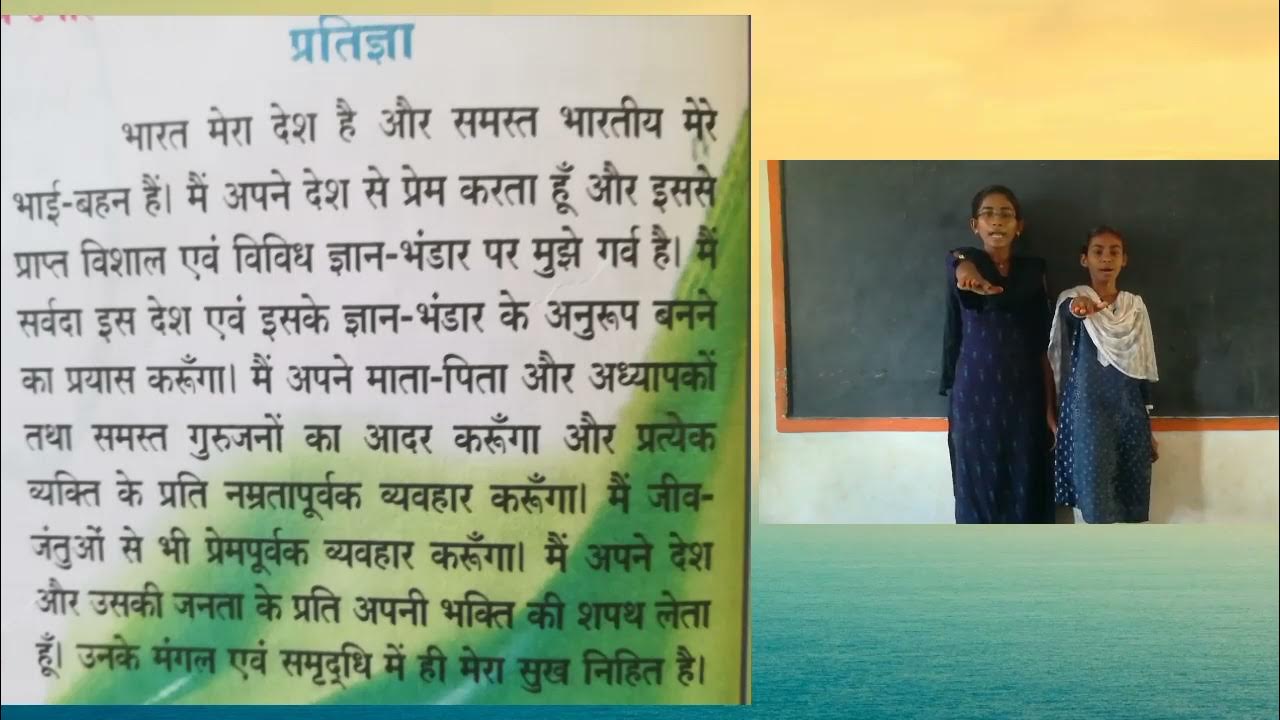 प्रतिज्ञा
भारत मेरा देश है और समस्त भारतीय मेरे
भाई-बहन हैं। मैं अपने देश से प्रेम करता हूँ और इससे
प्राप्त विशाल एवं विविध ज्ञान-भंडार पर मुझे गर्व है। मैं
सर्वदा इस देश एवं इसके ज्ञान-भंडार के अनुरूप बनने
का प्रयास करूँगा। मैं अपने माता-पिता और अध्यापकों
तथा समस्त गुरुजनों का आदर करूँगा और प्रत्येक
व्यक्ति के प्रति नम्रतापूर्वक व्यवहार करूँगा। मैं जीव-
जंतुओं से भी प्रेमपूर्वक व्यवहार करूँगा। मैं अपने देश
और उसकी जनता के प्रति अपनी भक्ति की शपथ लेता
हूँ। उनके मंगल एवं समृद्धि में ही मेरा सुख निहित है।